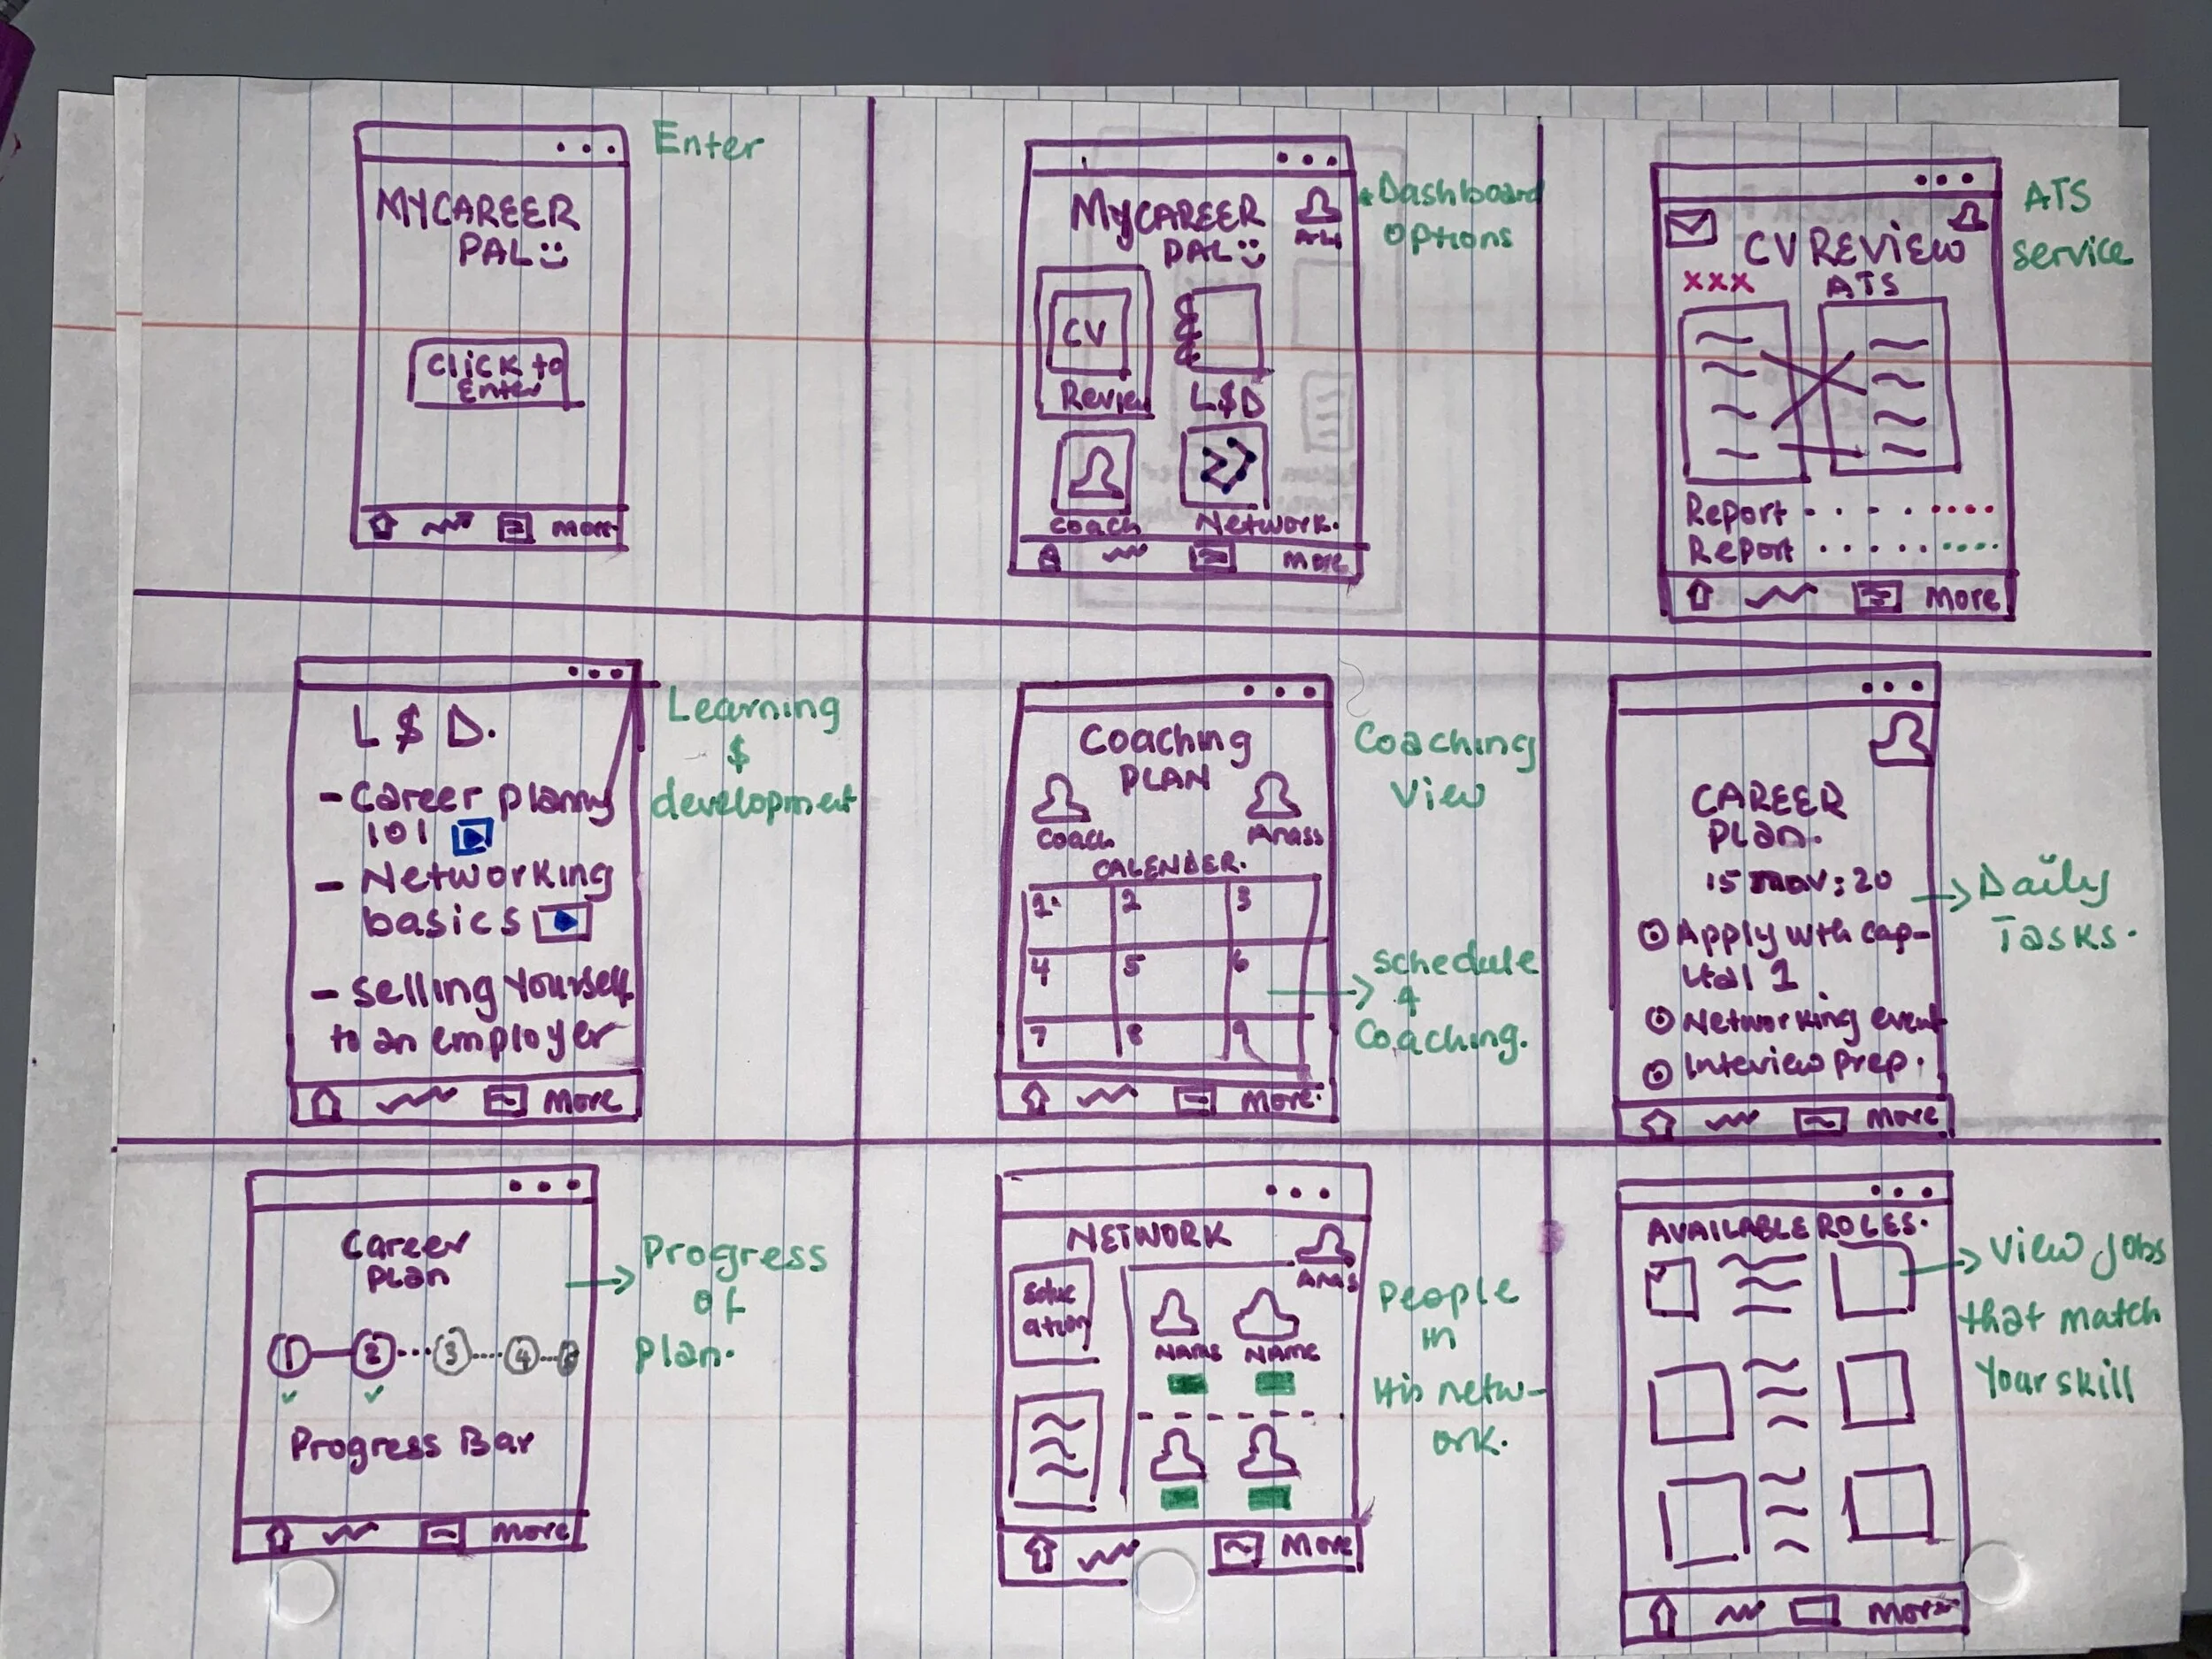 MYCAREER
PAL
Click to
Enter
more
Enter
MyCAREER
PAL
CV
Review
L$D
coach
Network.
more
Dashboard
options
CV REVIEW
xxx
ATS
Report
Report
More
ATS
service
L $ D.
- Career planny
101
- Networking
basics
- selling yourself
to an employer
More
Learning
$
development
Coaching
PLAN
Coach
Anass
CALENDER.
1.
2
3
4
5
6
7
8
9
more.
Coaching
View
schedule
4
Coaching.
CAREER
plan.
15 nov: 20
Apply wth cap-
ital 1
Networking event
Interview prep.
More
Daily
Tasks.
Career
plan
1
2
3
4
Progress Bar
more
Progress
of
plan.
NETWORK
Anas
Educ
ation
NAME
NAME
More
People
in
His netw-
ork.
AVAILABLE ROLES.
More
View jobs
that match
Your skill